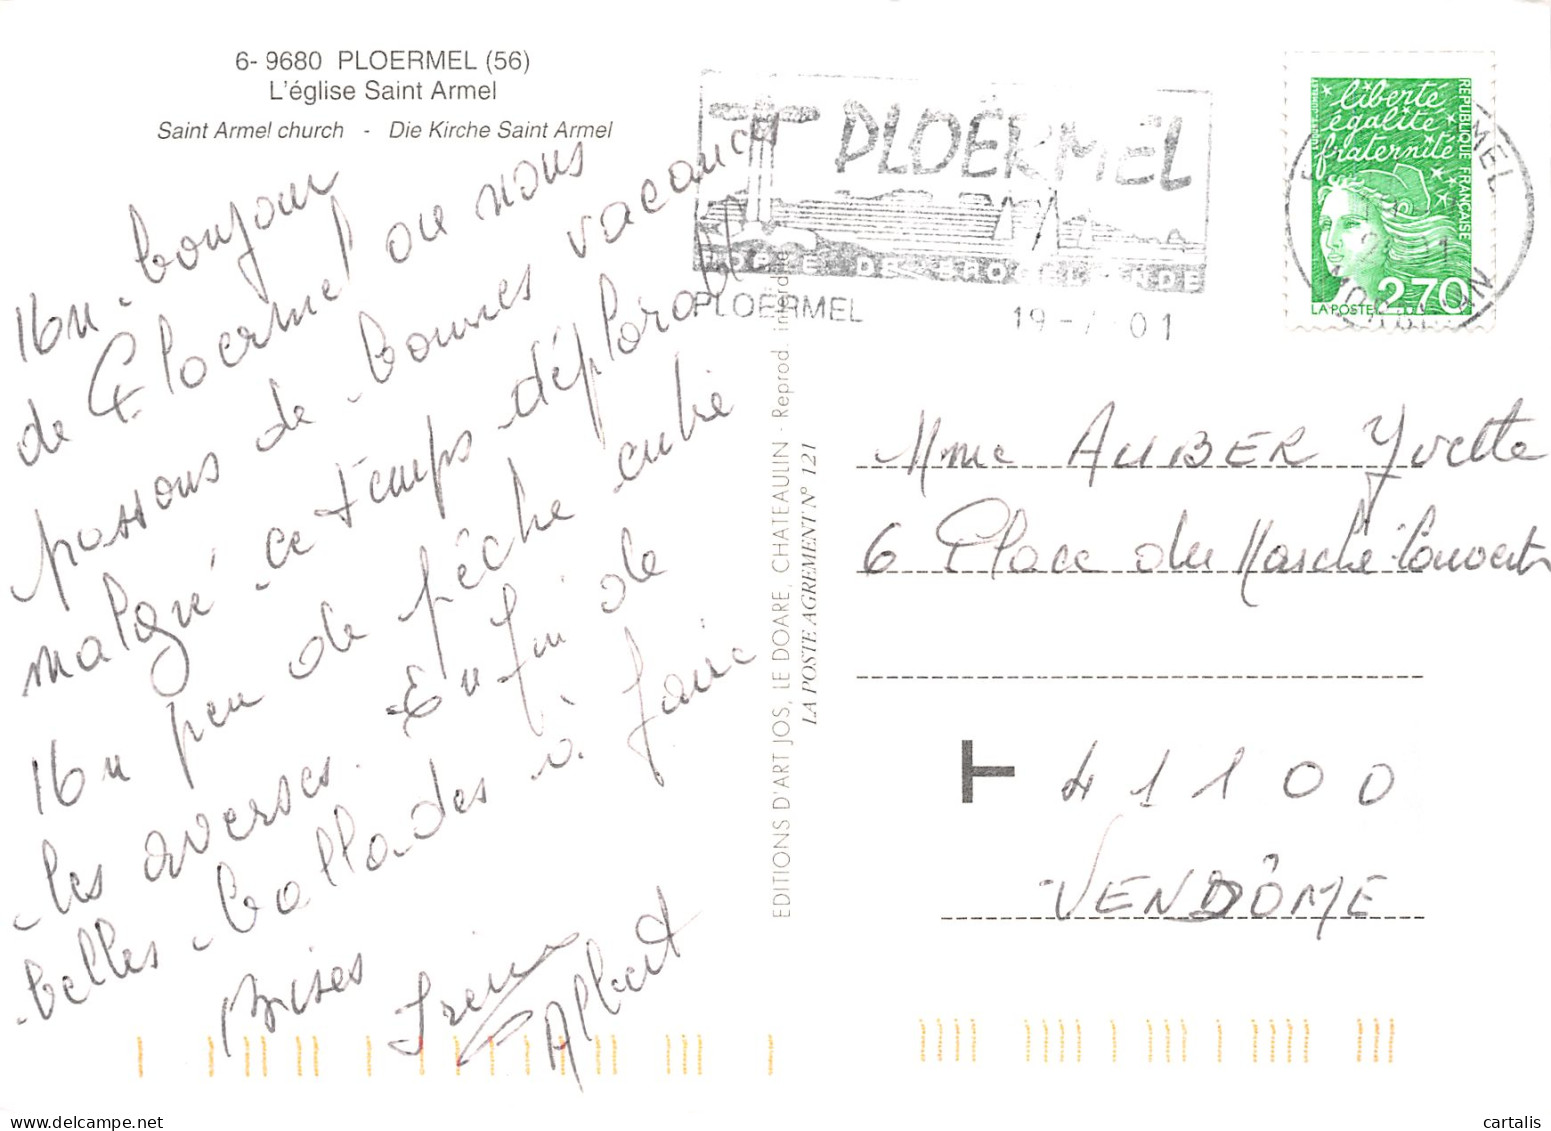 6- 9680 PLOERMEL (56)
L'église Saint Armel
Saint Armel church - Die Kirche Saint Armel
Un bonjour
de Ploermel ou nous
passons de bonnes vacances
malgré ce temps déplorable
Un peu de pêche entre
les averses. Enfin de
belles ballades à faire
Bises Irène
Albert
EDITIONS D'ART JOS, LE DOARE, CHATEAULIN - Reprod. interdite
LA POSTE AGREMENT N° 121
PLOËRMEL
PORTE DE BROCELIANDE
PLOERMEL 19-7-01
liberté
égalité
fraternité
REPUBLIQUE FRANÇAISE
LA POSTE 2,70
MORBIHAN
Mme AUBER Yvette
6 Place du Marché Couvert
T 41100
VENDÔME
www.delcampe.net
cartalis